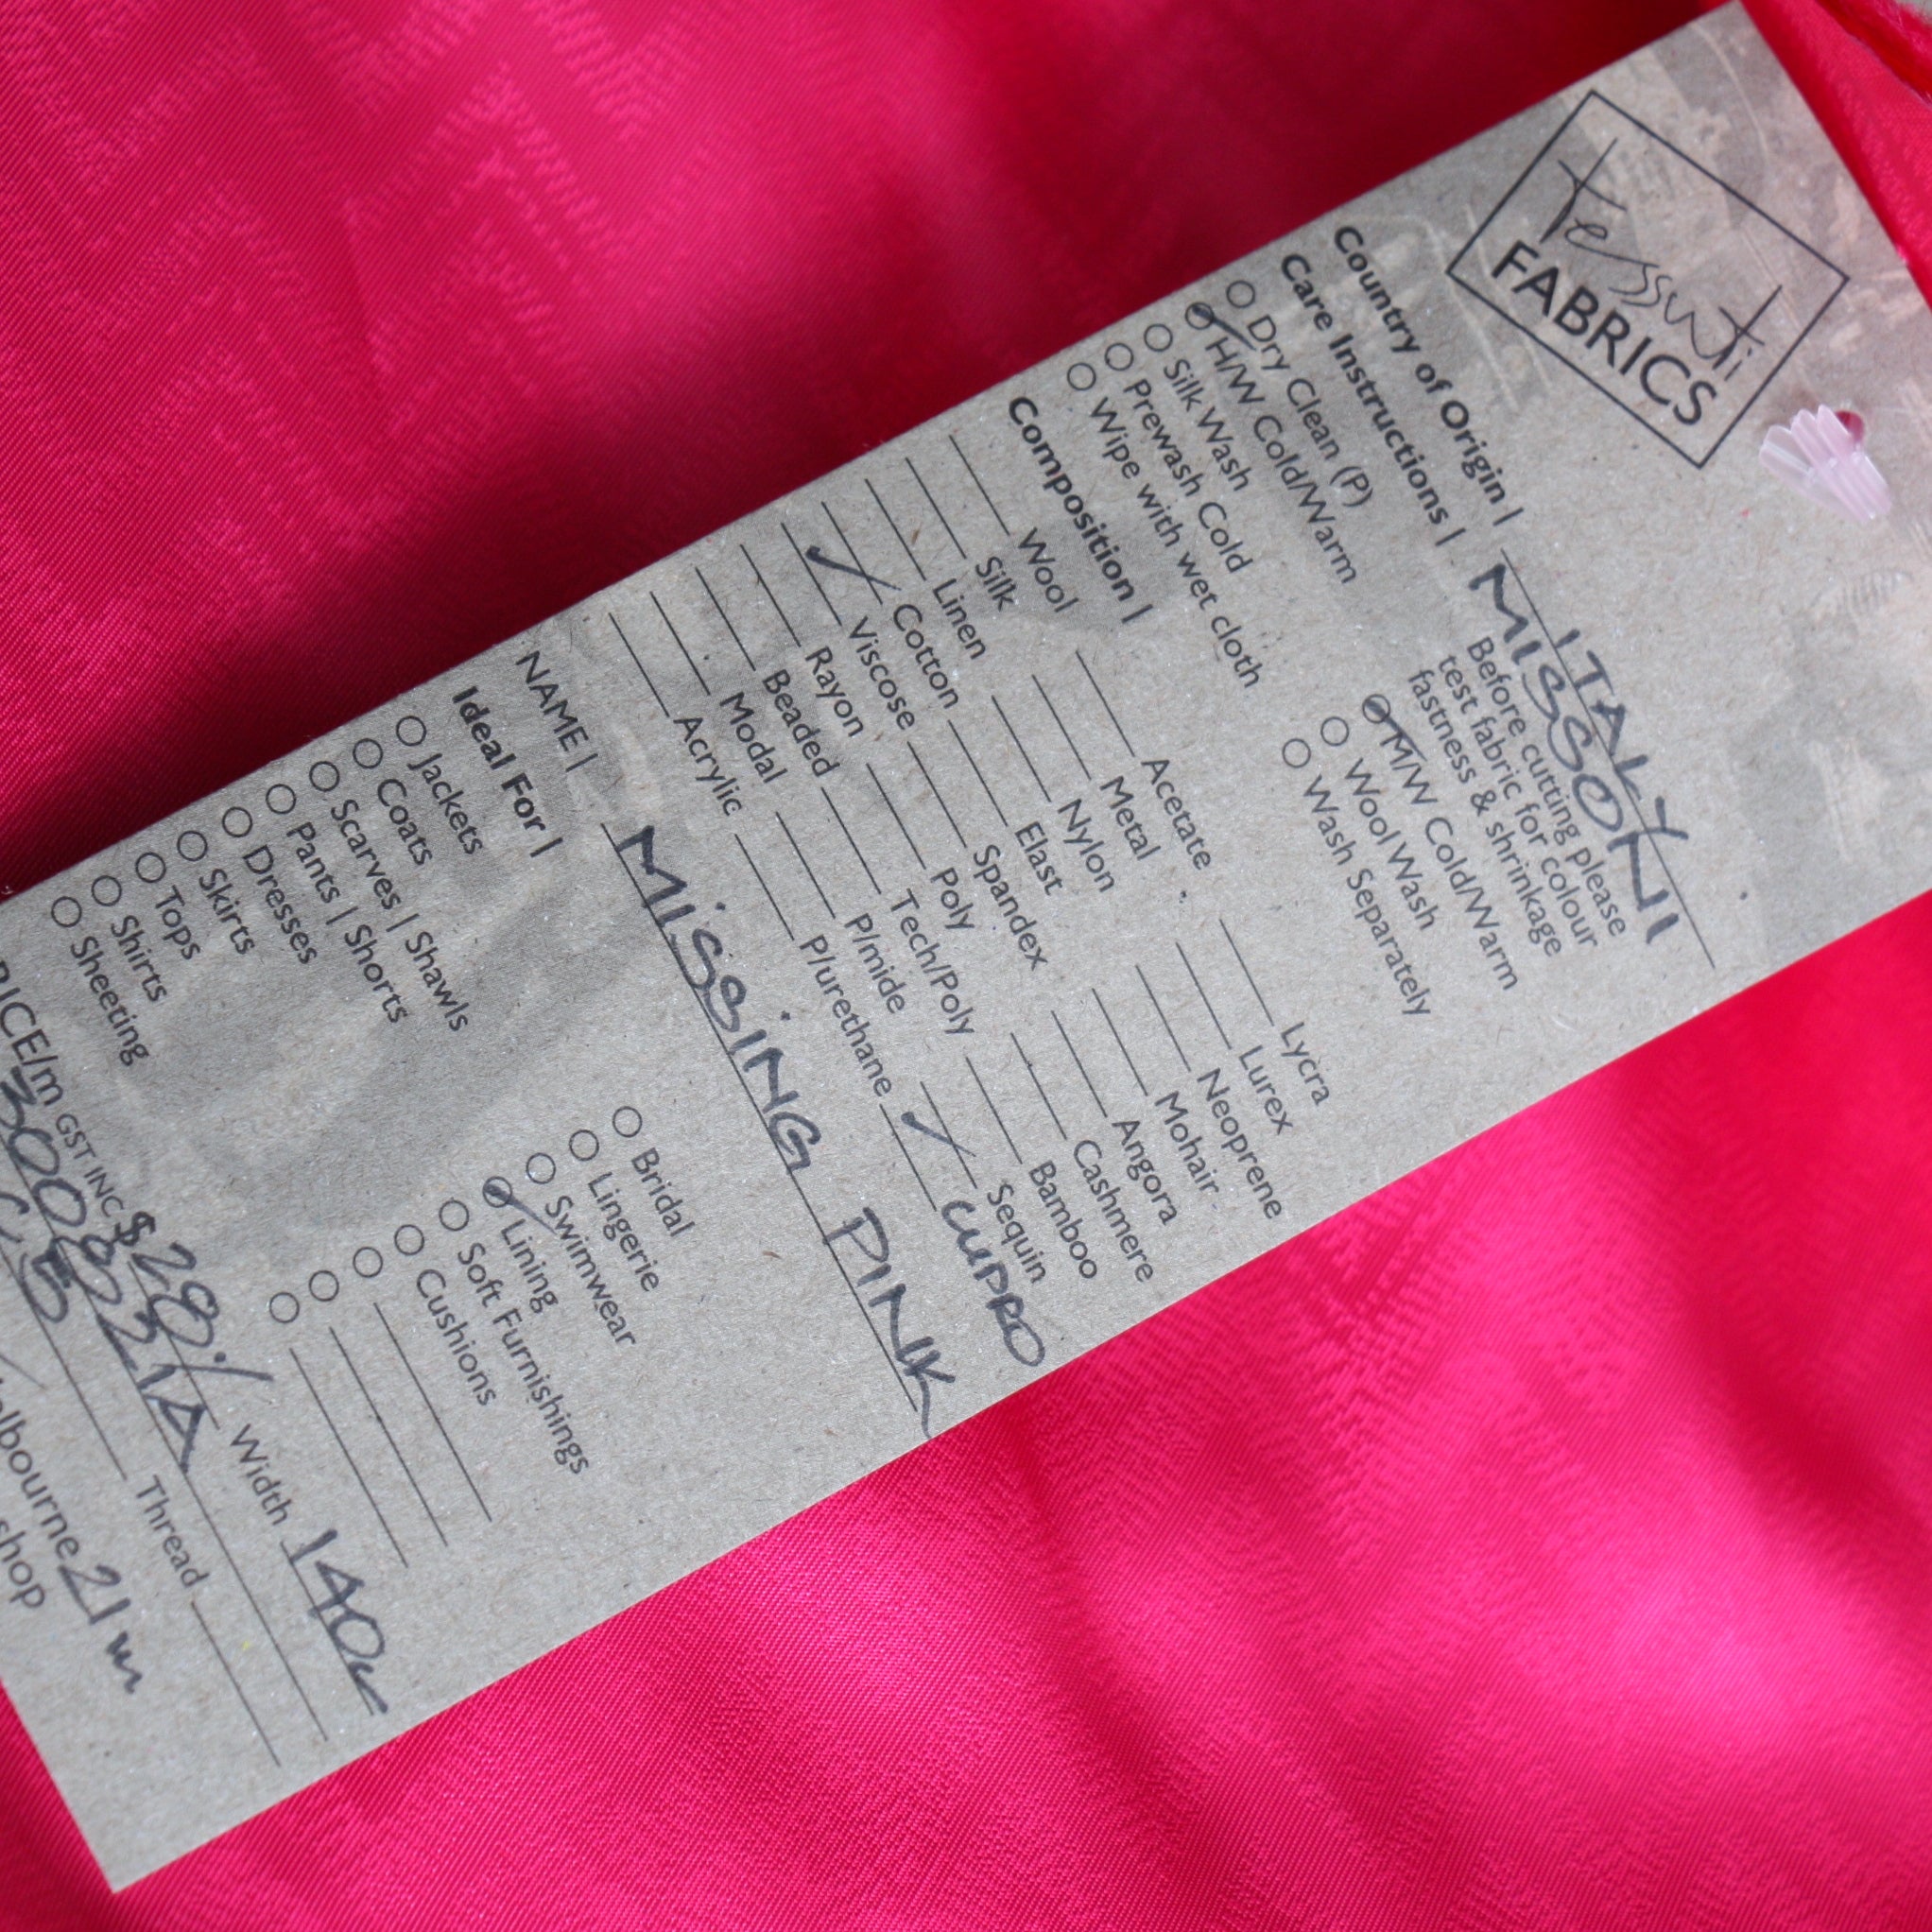 Tessuti
FABRICS
Country of Origin | ITALY
Care Instructions | MISSONI
Before cutting please
test fabric for colour
fastness & shrinkage
Dry Clean (P)
H/W Cold/Warm
M/W Cold/Warm
Silk Wash
Wool Wash
Prewash Cold
Wash Separately
Wipe with wet cloth
Composition |
Wool Acetate Lycra
Silk Metal Lurex
Linen Nylon Neoprene
Cotton Elast Mohair
Viscose Spandex Angora
Rayon Poly Cashmere
Beaded Tech/Poly Bamboo
Modal P/mide Sequin
Acrylic P/urethane CUPRO
NAME | MISSING PINK
Ideal For |
Jackets Bridal
Coats Lingerie
Scarves | Shawls Swimwear
Pants | Shorts Lining
Dresses Soft Furnishings
Skirts Cushions
Tops
Shirts
Sheeting
RICE/m GST INC $28 Width 140
Thread
lbourne 21m
hop